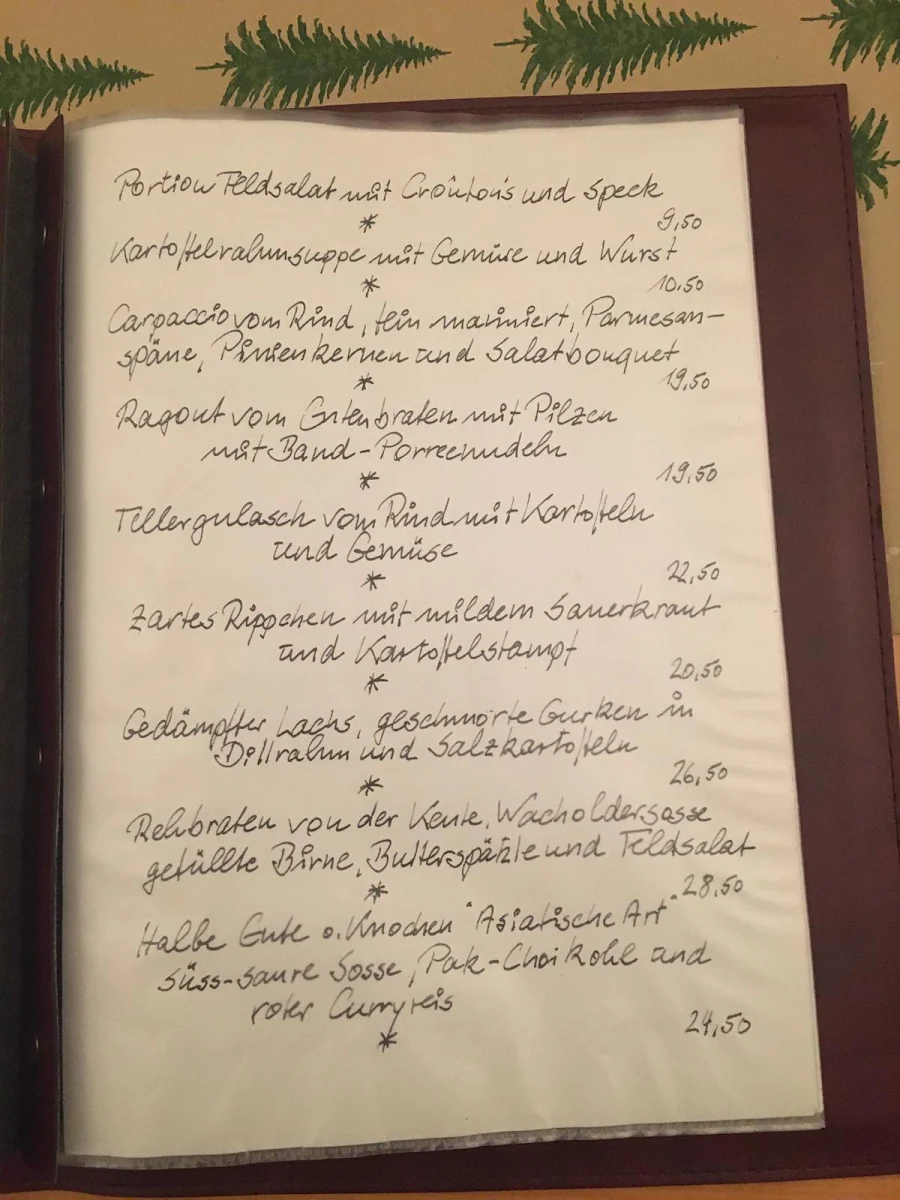 Portion Feldsalat mit Croûtons und Speck
*
9,50
Kartoffelrahmsuppe mit Gemüse und Wurst
*
10,50
Carpaccio vom Rind, fein mariniert, Parmesan-
späne, Pinienkernen und Salatbouquet
*
19,50
Ragout vom Entenbraten mit Pilzen
mit Band-Porreenudeln
*
19,50
Tellergulasch vom Rind mit Kartoffeln
und Gemüse
*
22,50
Zartes Rippchen mit mildem Sauerkraut
und Kartoffelstampf
*
20,50
Gedämpfter Lachs, geschmorte Gurken in
Dillrahm und Salzkartoffeln
*
26,50
Rehbraten von der Keule, Wacholdersosse
gefüllte Birne, Butterspätzle und Feldsalat
*
28,50
Halbe Ente o. Knochen "Asiatische Art"
süss-saure Sosse, Pak-Choikohl und
roter Curryreis
*
24,50